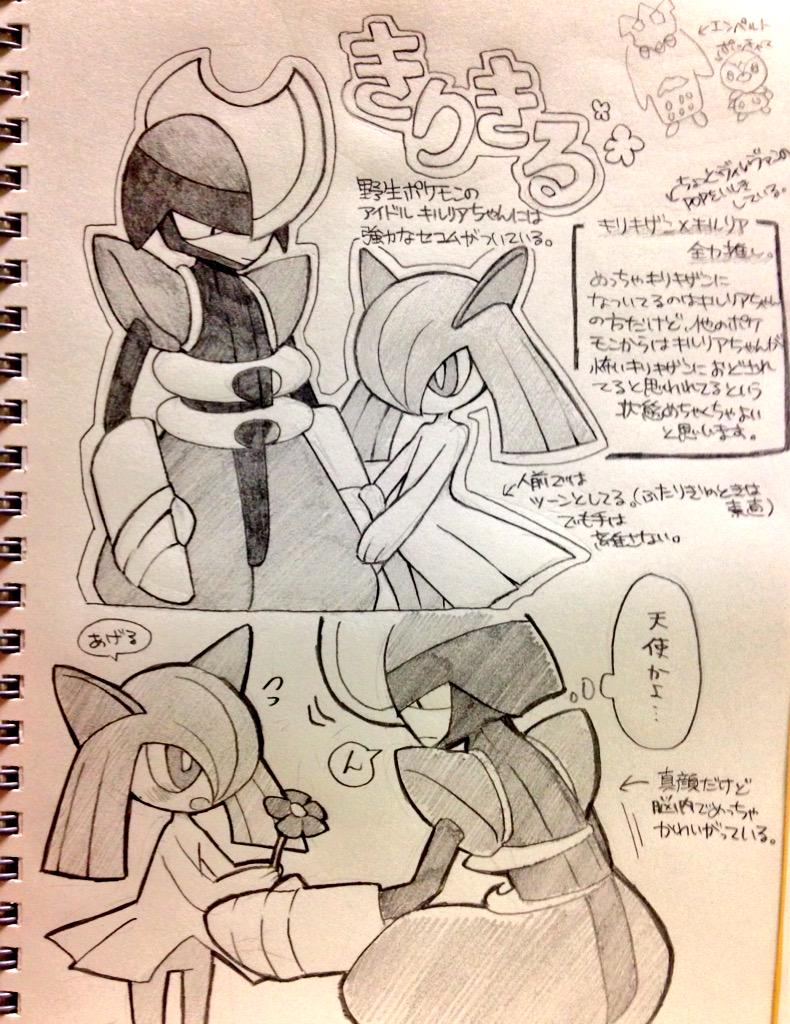 きりきる
←エンペルト
ポッチャマ
野生ポケモンの
アイドル キルリアちゃんには
強力なセコムがついている。
している。
キリキザン×キルリア
全力推し。
めっちゃキリキザンに
なついてるのはキルリアちゃん
の方だけど、他のポケ
モンからはキルリアちゃんが
怖いキリキザンにおどされ
てると思われてるという
状態めちゃくちゃよい
と思います。
人前では
ツーンとしてる。(ふたりきりのときは
素直)
でも手は
離さない。
あげる
ん
天使かよ…
← 真顔だけど
脳内でめっちゃ
かわいがっている。